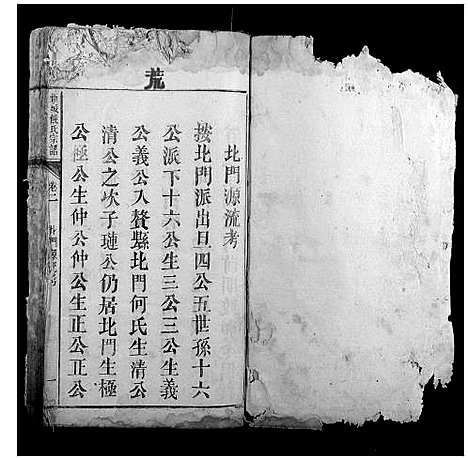 荒
北門源流考
按北門派出日四公五世孫十六
公派下十六公生三公三公生義
公義公入贅縣北門何氏生清公
清公之次子璉公仍居北門生極
公極公生仲公仲公生正公正公
氏宗譜
卷一
北門源流考